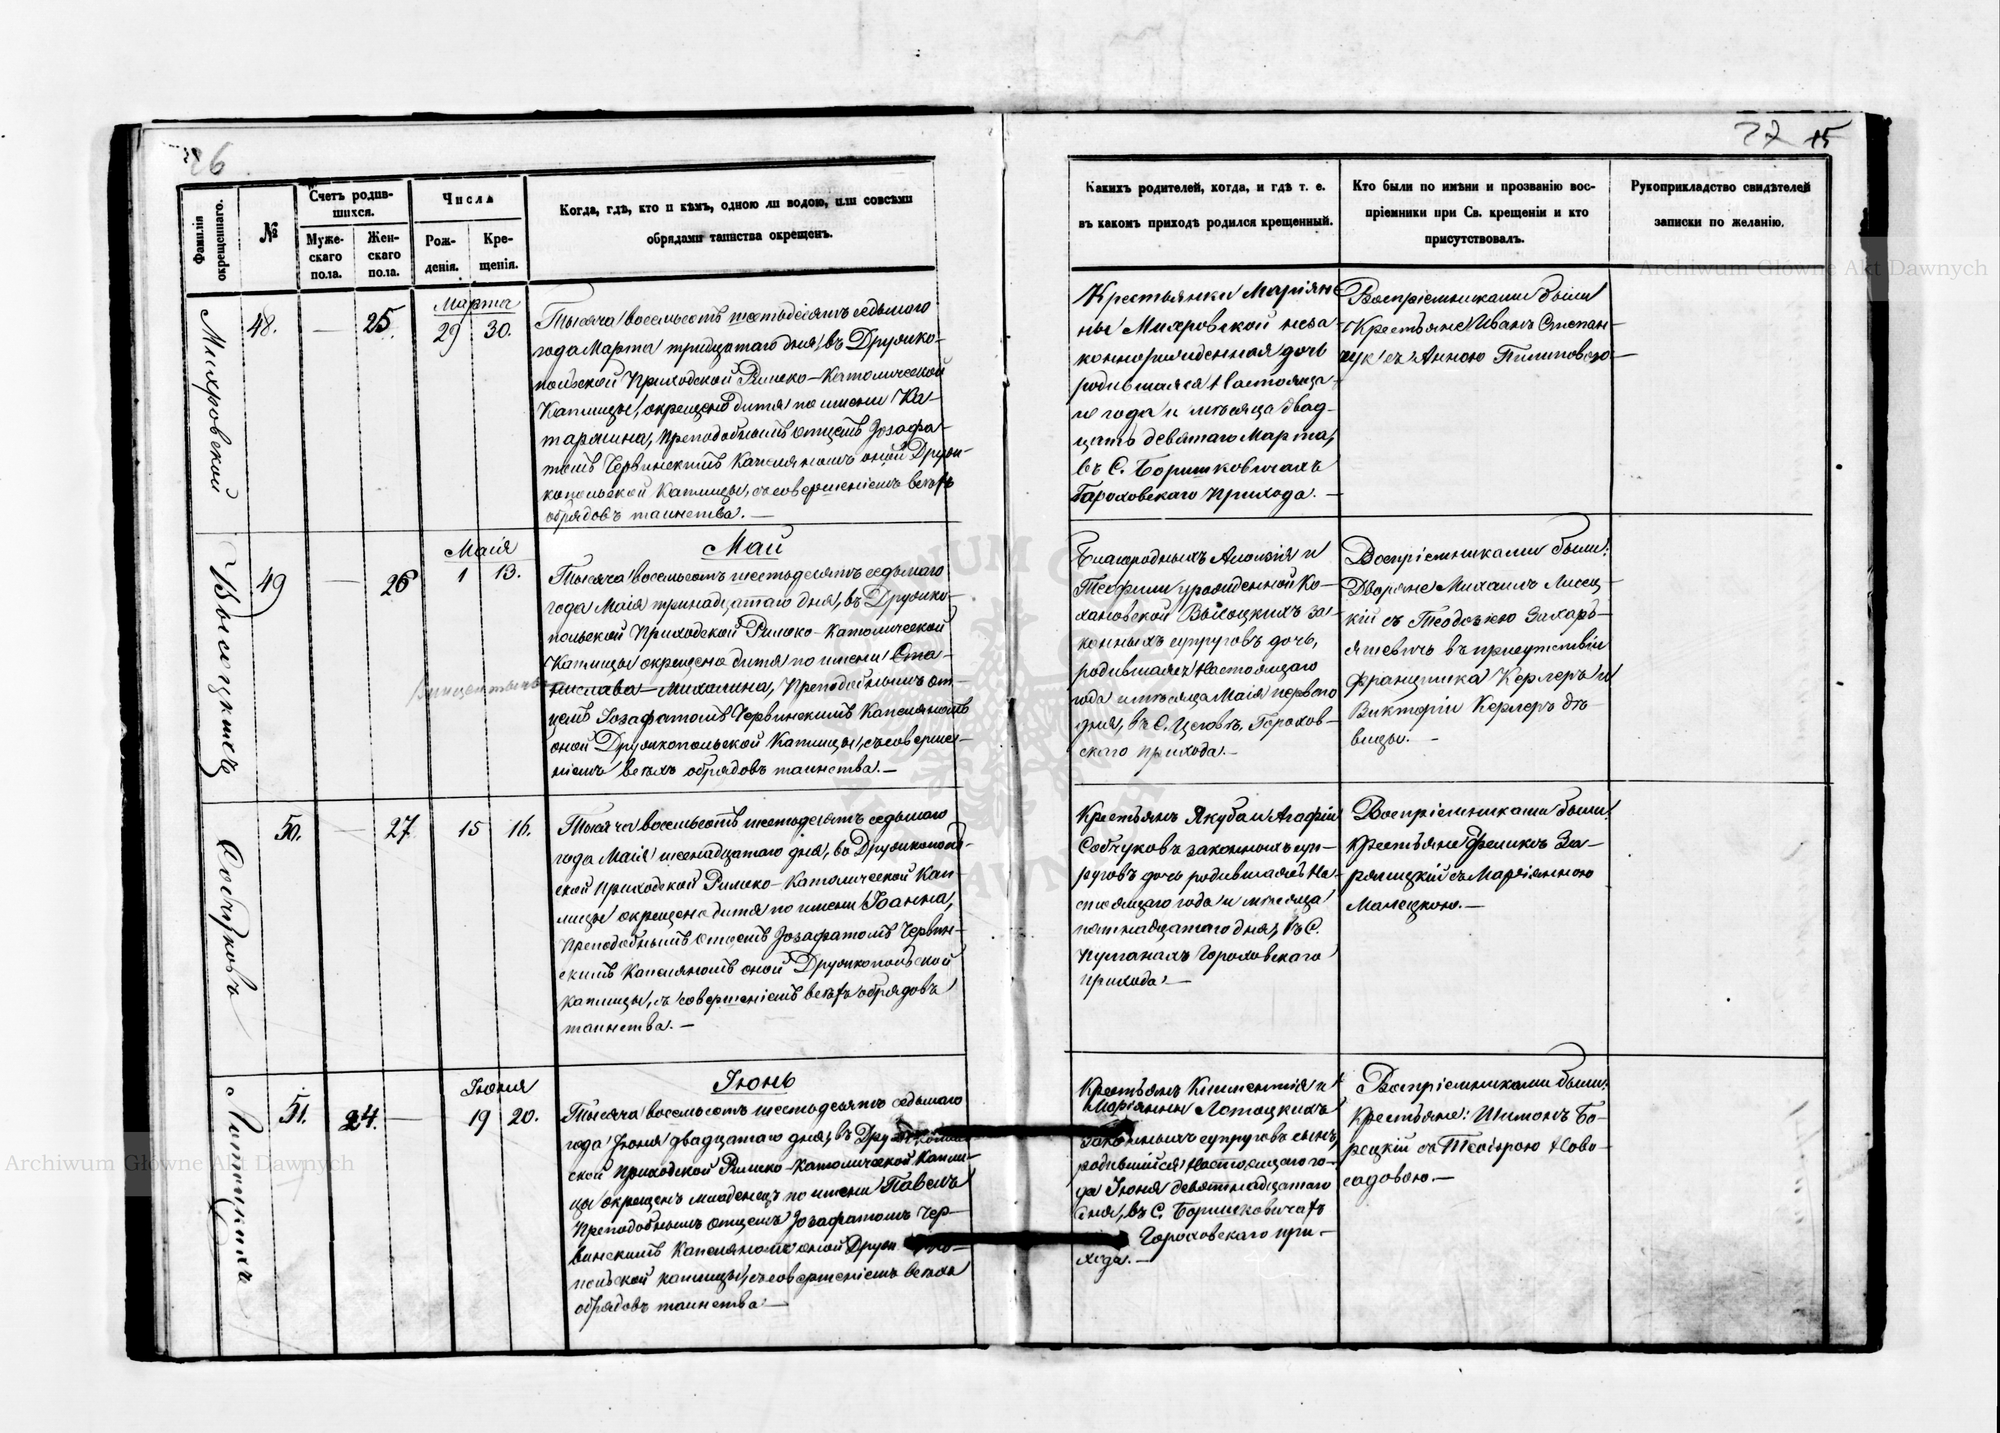 26
27 15
Фамилія окрещеннаго.
№
Счетъ родив-
шихся.
Муже-
скаго
пола.
Жен-
скаго
пола.
Числа
Рож-
денія.
Кре-
щенія.
Когда, гдѣ, кто и кѣмъ, одною ли водою, или совсѣми
обрядами таинства окрещенъ.
Какихъ родителей, когда, и гдѣ т. е.
въ какомъ приходѣ родился крещенный.
Кто были по имѣни и прозванію вос-
пріемники при Св. крещеніи и кто
присутствовалъ.
Рукоприкладство свидѣтелей
записки по желанію.
48.
—
25.
Марта
29 30.
Тысяча восемьсотъ шестьдесятъ седьмого
года Марта тридцатаго дня, въ Друшко-
польской Приходской Римско-Католической
Каплицы, окрещено дитя по имени Ка-
таржина, Преподобнымъ Отцемъ Іозафа-
томъ Червинскимъ Капеляномъ оной Друш-
копольской Каплицы, съ совершеніемъ всѣхъ
обрядовъ таинства.—
Крестьянки Маріян-
ны незa
коннорожденная дочь
родившаяся Настояща-
го года и мѣсяца двад-
цать девятаго Марта,
въ С. Боришковичахъ
Гороховскаго Прихода.—
Воспріемниками были
Крестьяне Иванъ Степан-
чукъ съ Анною
Высоцкихъ
49
—
26
Маія
1 13.
Май
Тысяча восемьсотъ шестьдесятъ седьмаго
года Маія тринадцатаго дня, въ Друшко-
польской Приходской Римско-Католической
Каплицы окрещено дитя по имени Ста-
нислава-Михалина, Преподобнымъ От-
цемъ Іозафатомъ Червинскимъ Капеляномъ
оной Друшкопольской Каплицы, съ соверше-
ніемъ всѣхъ обрядовъ таинства.—
Благородныхъ Алоизія и
Теофили урожденной Ко-
хановской Высоцкихъ за-
конныхъ супруговъ дочь,
родившаяся Настоящаго
года и мѣсяца Маія перваго
дня, въ С. Цеговѣ, Горохов-
скаго прихода.—
Воспріемниками были:
Дворяне Михаилъ Лисец-
кій съ Теодозіею Захарь-
яшевичъ въ присутствіи
Францишка Керлеръ и
Викторіи Керлеръ дѣ-
вицы.—
Собчуковъ
50.
—
27.
15 16.
Тысяча восемьсотъ шестьдесятъ седьмаго
года Маія шенадцатаго дня, во Друшкополь-
ской Приходской Римско-Католической Кап-
лицы окрещено дитя по имени Іоанна,
Преподобнымъ Отцемъ Іозафатомъ Червин-
скимъ Капеляномъ оной Друшкопольской
каплицы, съ совершеніемъ всѣхъ обрядовъ
таинства.—
Крестьянъ Якуба и Агафіи
Собчуковъ законныхъ суп-
руговъ дочь родившаяся На-
стоящаго года и мѣсяца
пятнадцатаго дня, въ С.
Гороховскаго
прихода.—
Воспріемниками были:
крестьяне Феликсъ За-
ржицкій съ Маріянною
Малецкою.—
51.
24.
—
Іюня
19 20.
Іюнь
Тысяча восемьсотъ шестьдесятъ седьмаго
года Іюня двадцатаго дня, въ
ской Приходской Римско-Католической Капли-
цы окрещенъ младенецъ по имени Павелъ
Преподобнымъ Отцемъ Іозафатомъ Чер-
винскимъ Капеляномъ оной
польской каплицы, съ совершеніемъ всѣхъ
обрядовъ таинства.—
Крестьянъ Климентія и
Маріянны Лотоцкихъ
законныхъ супруговъ сынъ,
родившійся Настоящаго го-
да Іюня девятнадцатаго
дня, въ С. Боришковичахъ
Гороховскаго при-
хода.—
Воспріемниками были:
Крестьяне: Шимонъ Бо-
рецкій съ Теофилою Ново-
садовою.—
Archiwum Główne Akt Dawnych
Archiwum Główne Akt Dawnych